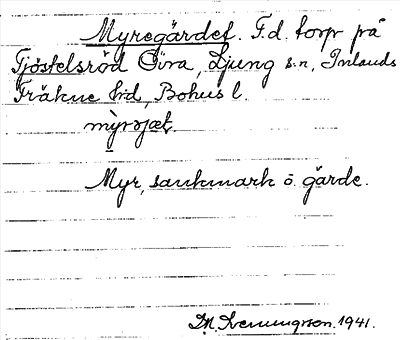 Myregärdet. F.d. torp på
Tjöstelsröd Övra, Ljung s:n, Inlands
Fräkne hd, Bohus l.
Myr, sankmark o. gärde.
D.A. Svenungson. 1941.